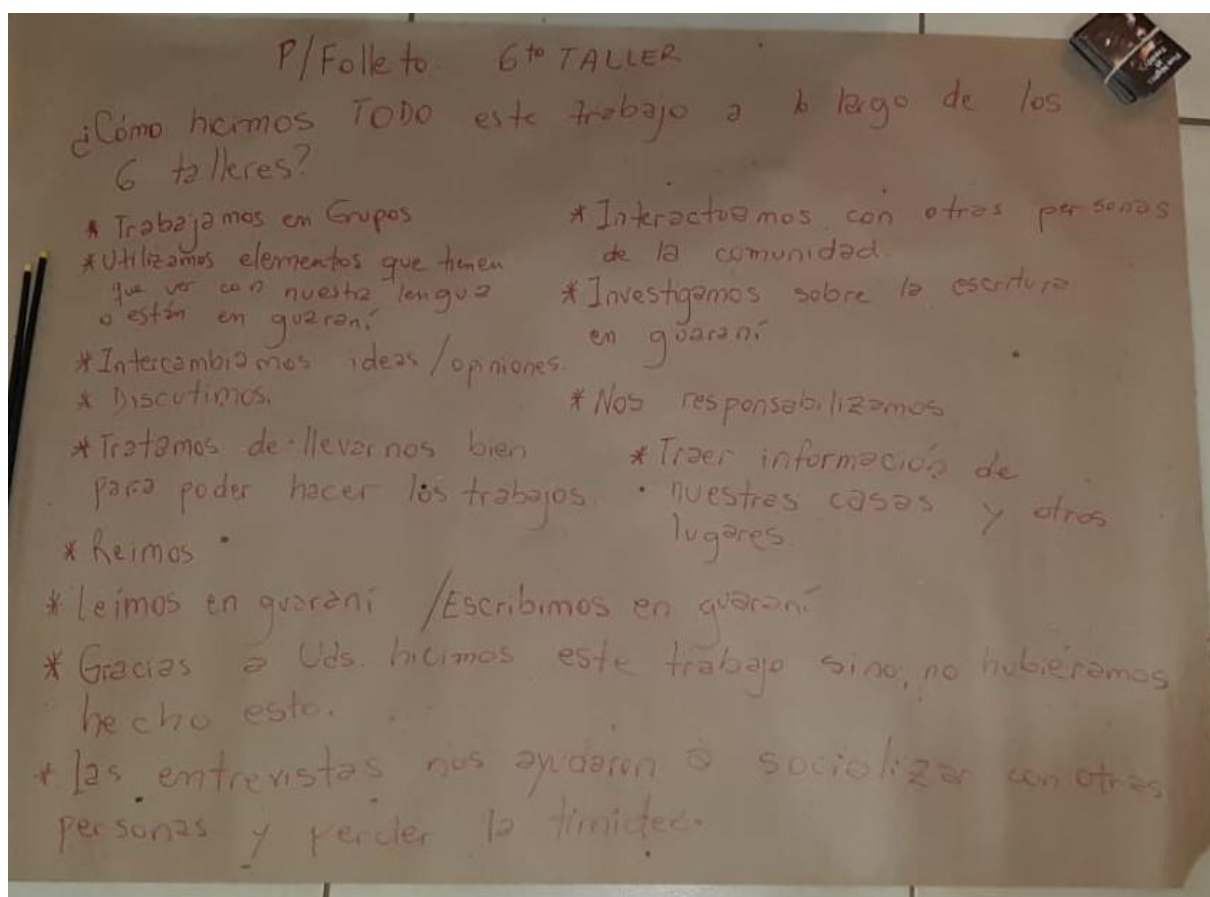 P/Folleto. 6to TALLER
¿Cómo hicimos TODO este trabajo a lo largo de los
6 talleres?
* Trabajamos en Grupos
* Utilizamos elementos que tienen
que ver con nuestra lengua
o están en guaraní
* Intercambiamos ideas/opiniones.
* Discutimos.
* Tratamos de llevarnos bien
para poder hacer los trabajos.
* Reimos
* Interactuamos con otras personas
de la comunidad.
* Investigamos sobre la escritura
en guaraní
* Nos responsabilizamos
* Traer información de
nuestras casas y otros
lugares.
* Leímos en guaraní /Escribimos en guaraní
* Gracias a Uds. hicimos este trabajo sino, no hubiéramos
hecho esto.
* las entrevistas nos ayudaron a socializar con otras
personas y perder la timidez.